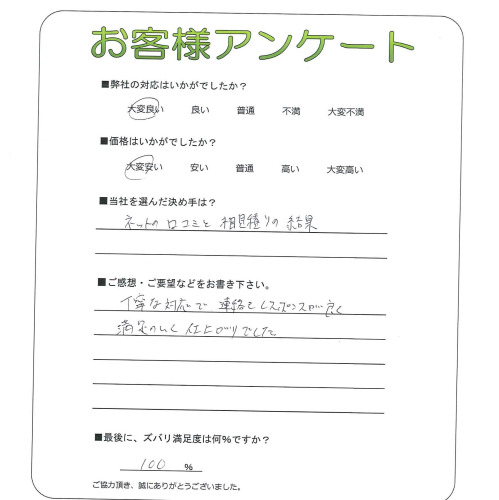 お客様アンケート
■弊社の対応はいかがでしたか？
大変良い 良い 普通 不満 大変不満
■価格はいかがでしたか？
大変安い 安い 普通 高い 大変高い
■当社を選んだ決め手は？
ネットの口コミと相見積りの結果
■ご感想・ご要望などをお書き下さい。
丁寧な対応で 連絡もレスポンスが良く
満足のいく仕上がりでした
■最後に、ズバリ満足度は何%ですか？
100 %
ご協力頂き、誠にありがとうございました。